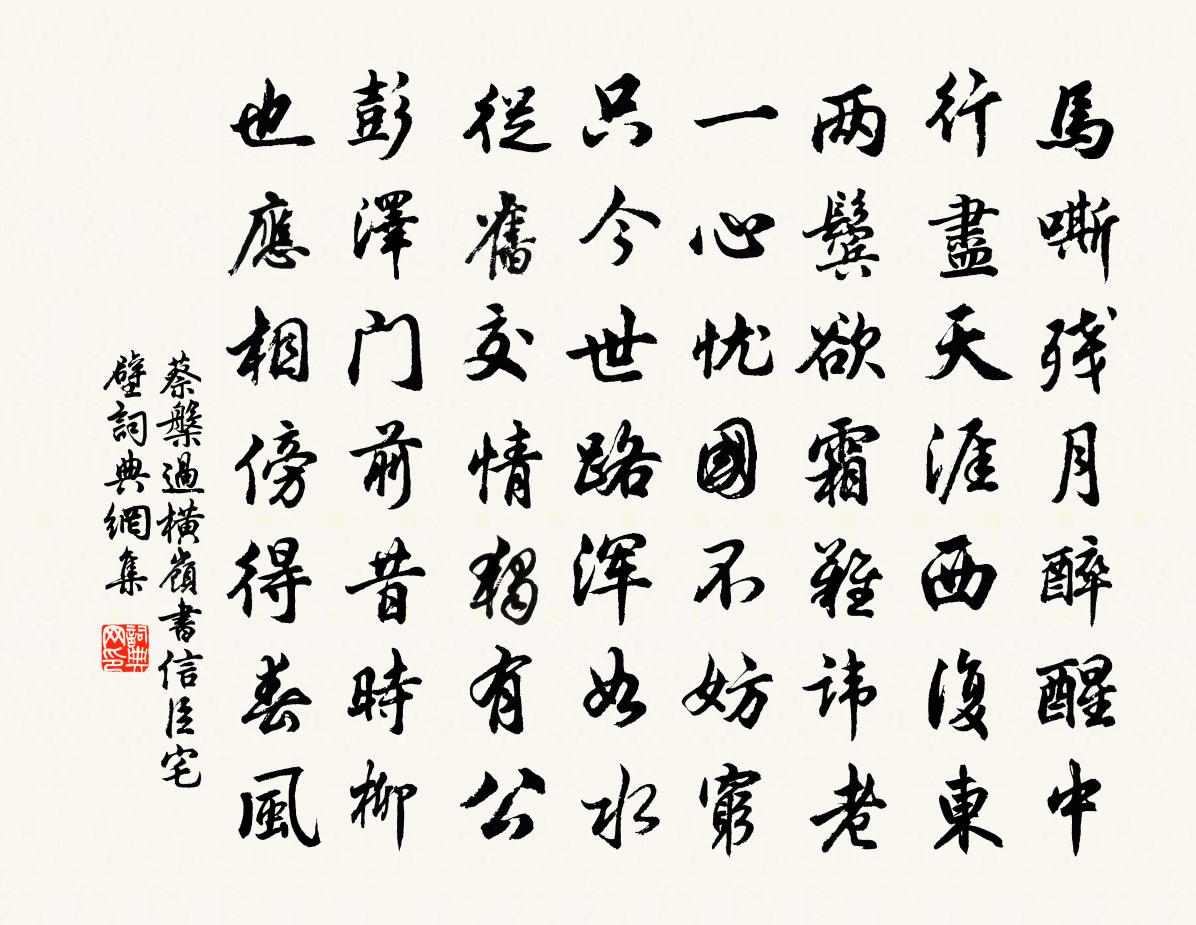 馬嘶残月醉醒中
行盡天涯西復東
两鬓欲霜難讳老
一心忧國不妨窮
只今世路浑如水
從舊交情獨有公
彭澤门前昔時柳
也應相傍得春風
蔡槃過橫嶺書信臣宅
壁詞典網集
詞典网印